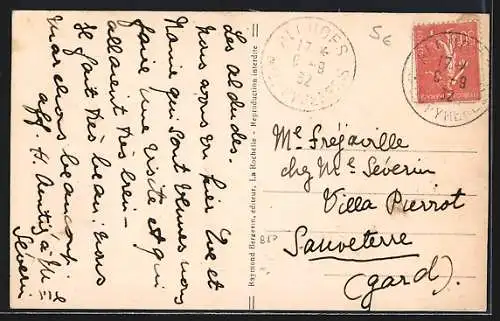 Les Aldudes.
Nous avons vu hier Eve et
Marie qui sont venues nous
faire une visite et qui
allaient très bien —
Il fait très beau, nous
marchons beaucoup.
aff. H. Amitiés à M. et
Séverin
Raymond Bergevin, éditeur, La Rochelle - Reproduction interdite
ALDUDES
17
6-9
32
5€
Me Fréjaville
chez Me Séverin
Villa Pierrot
Sauveterre
(gard).